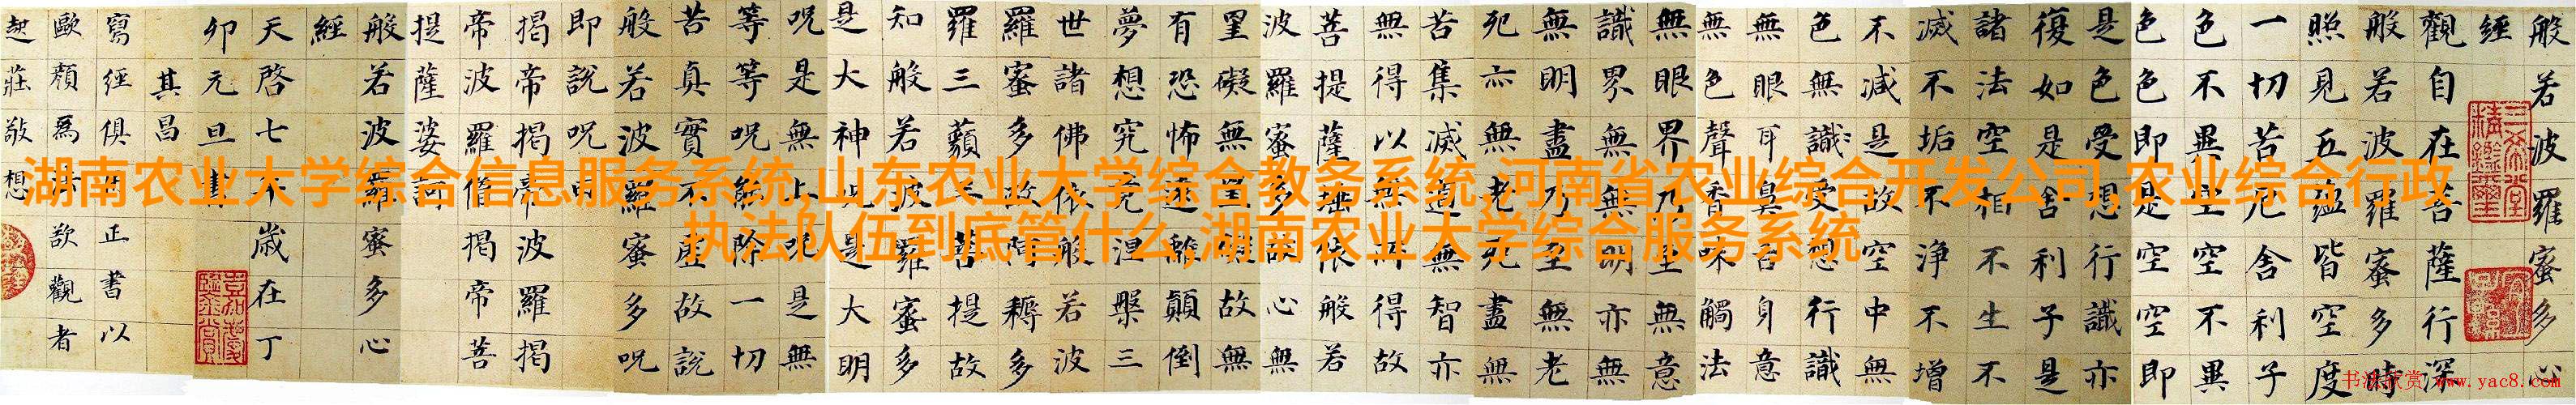 湖南农业大学综合信息服务系统,山东农业大学综合教务系统,河南省农业综合开发公司,农业综合行政
执法队伍到底管什么,湖南农业大学综合服务系统
般若波羅蜜多心
經
觀自在菩薩行深
般若波羅蜜多時
照見五蘊皆空度
一切苦厄舍利子
色不異空空不異
色色即是空空即
是色受想行識亦
復如是舍利子是
諸法空相不生不
滅不垢不淨不增
不減是故空中無
色無識受想行識
無眼耳鼻舌身意
無色聲香味觸法
無眼界乃至無意
識界無無明亦無
無明盡乃至無老
死亦無老死盡無
苦集滅道無智亦
無得以無所得故
菩提薩埵依般若
波羅蜜多故心無
罣礙無罣礙故無
有恐怖遠離顛倒
夢想究竟涅槃三
世諸佛依般若波
羅蜜多故阿耨多
羅三藐三菩提故
知般若波羅蜜多
是大神咒是大明
呪是無上呪是無
等等呪能除一切
苦真實不虛故說
般若波羅蜜多呪
即說呪曰
揭帝揭帝波羅揭
帝波羅僧揭帝菩
提薩婆訶
般若波羅蜜多心
經
天啓七年歲在丁
卯元旦書
其昌
寫經俱用正書以
歐顏為師欲觀者
起莊敬想
书法欣赏 www.yac8.com